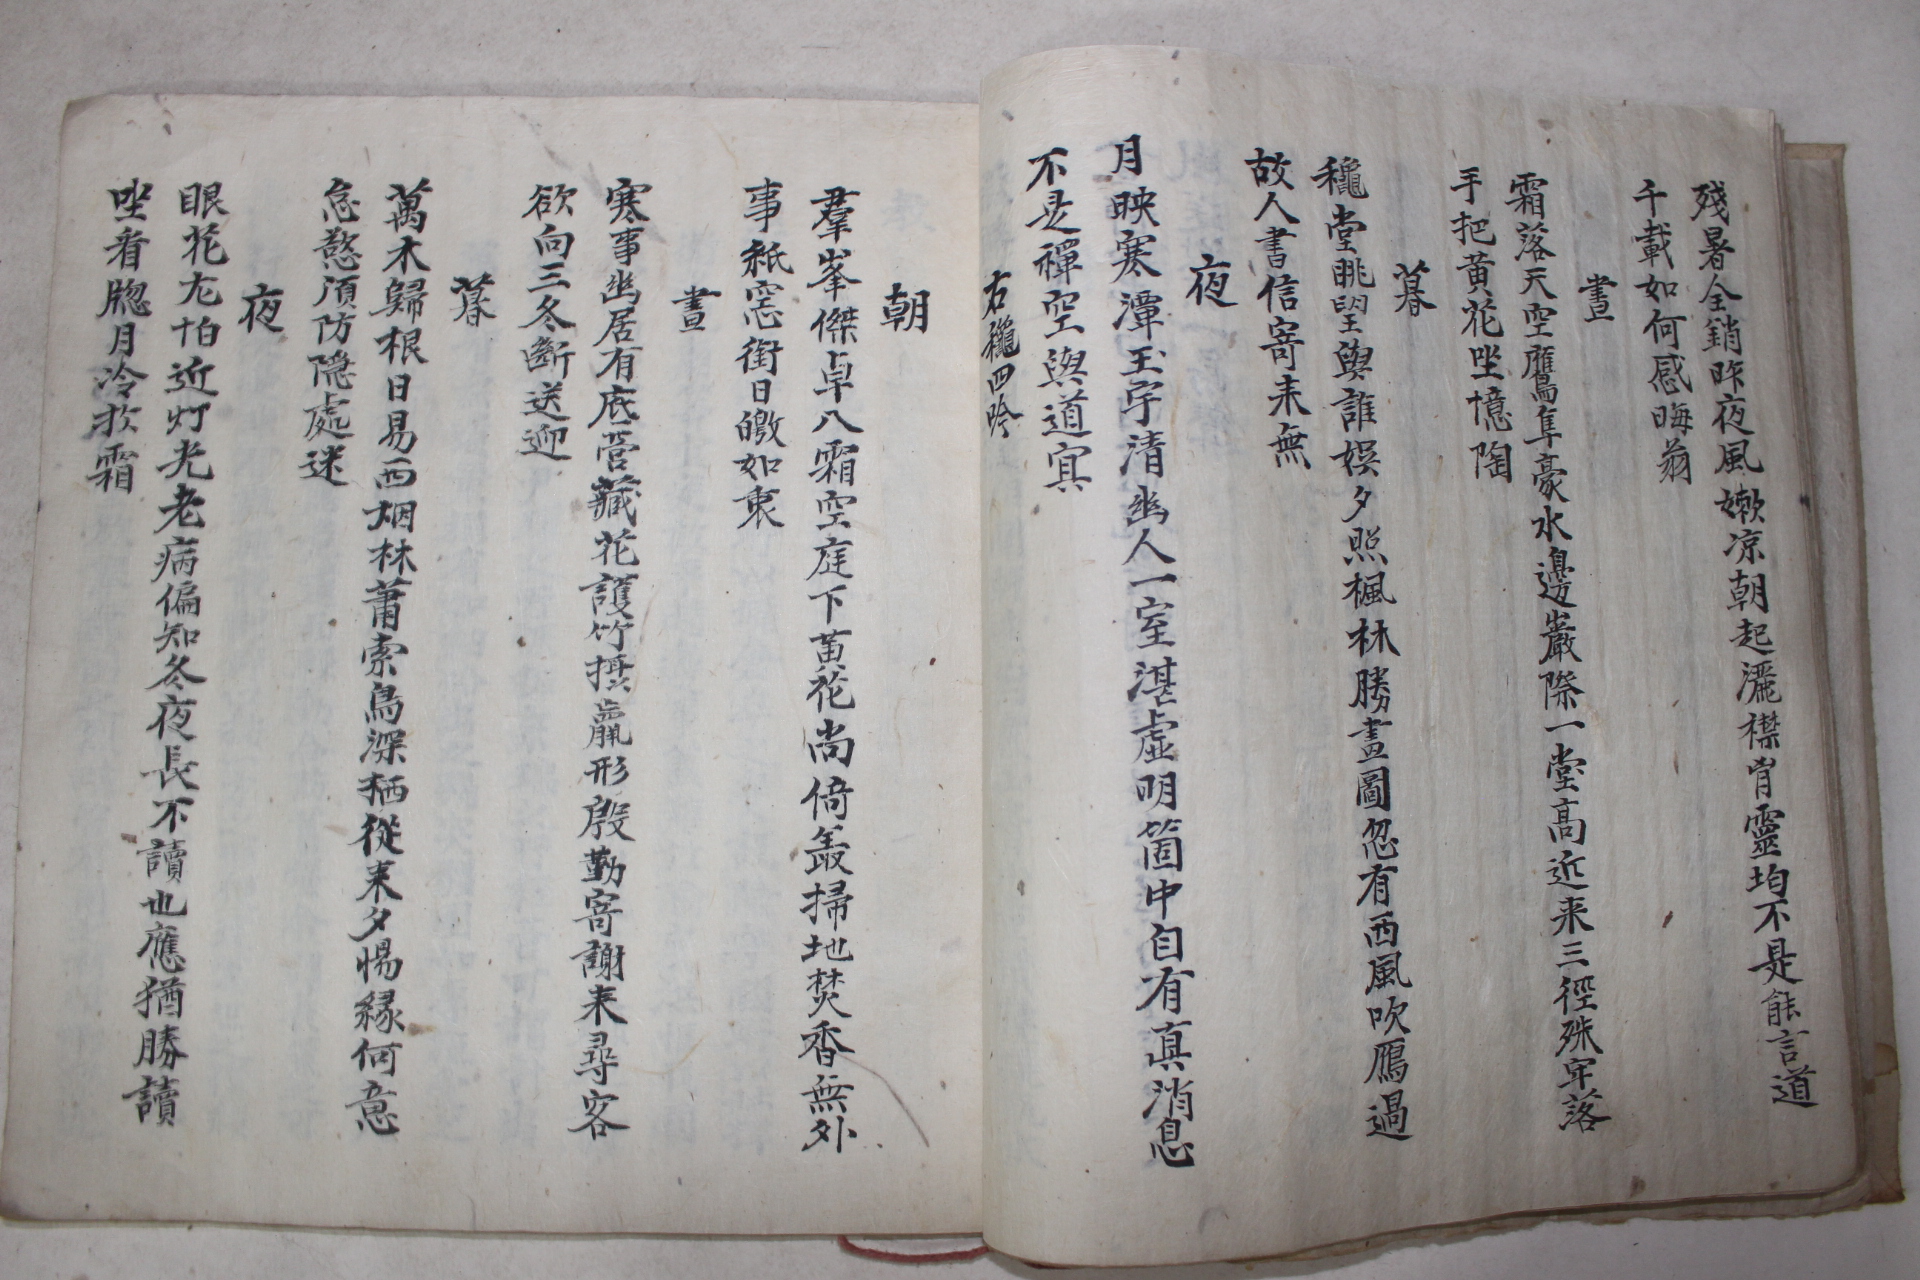 殘暑全銷昨夜風嫩凉朝起灑襟胷靈均不是能言道
千載如何感晦翁
晝
霜落天空鷹隼豪水邊巖際一堂高近来三徑殊牢落
手把黄花坐憶陶
暮
龝堂眺望與誰娛夕照楓林勝畫圖忽有西風吹鴈過
故人書信寄来無
夜
月映寒潭玉宇清幽人一室湛虛明箇中自有真消息
不是禪空與道冥
右龝四吟
朝
羣峯傑卓八霜空庭下黄花尚倚叢掃地焚香無外
事紙窓銜日皦如衷
晝
寒事幽居有底營藏花護竹攝羸形殷勤寄謝来尋客
欲向三冬斷送迎
暮
萬木歸根日易西烟林蕭索鳥深栖從来夕惕緣何意
怠慾須防隱處迷
夜
眼花尤怕近灯光老病偏知冬夜長不讀也應猶勝讀
坐看牎月冷扵霜